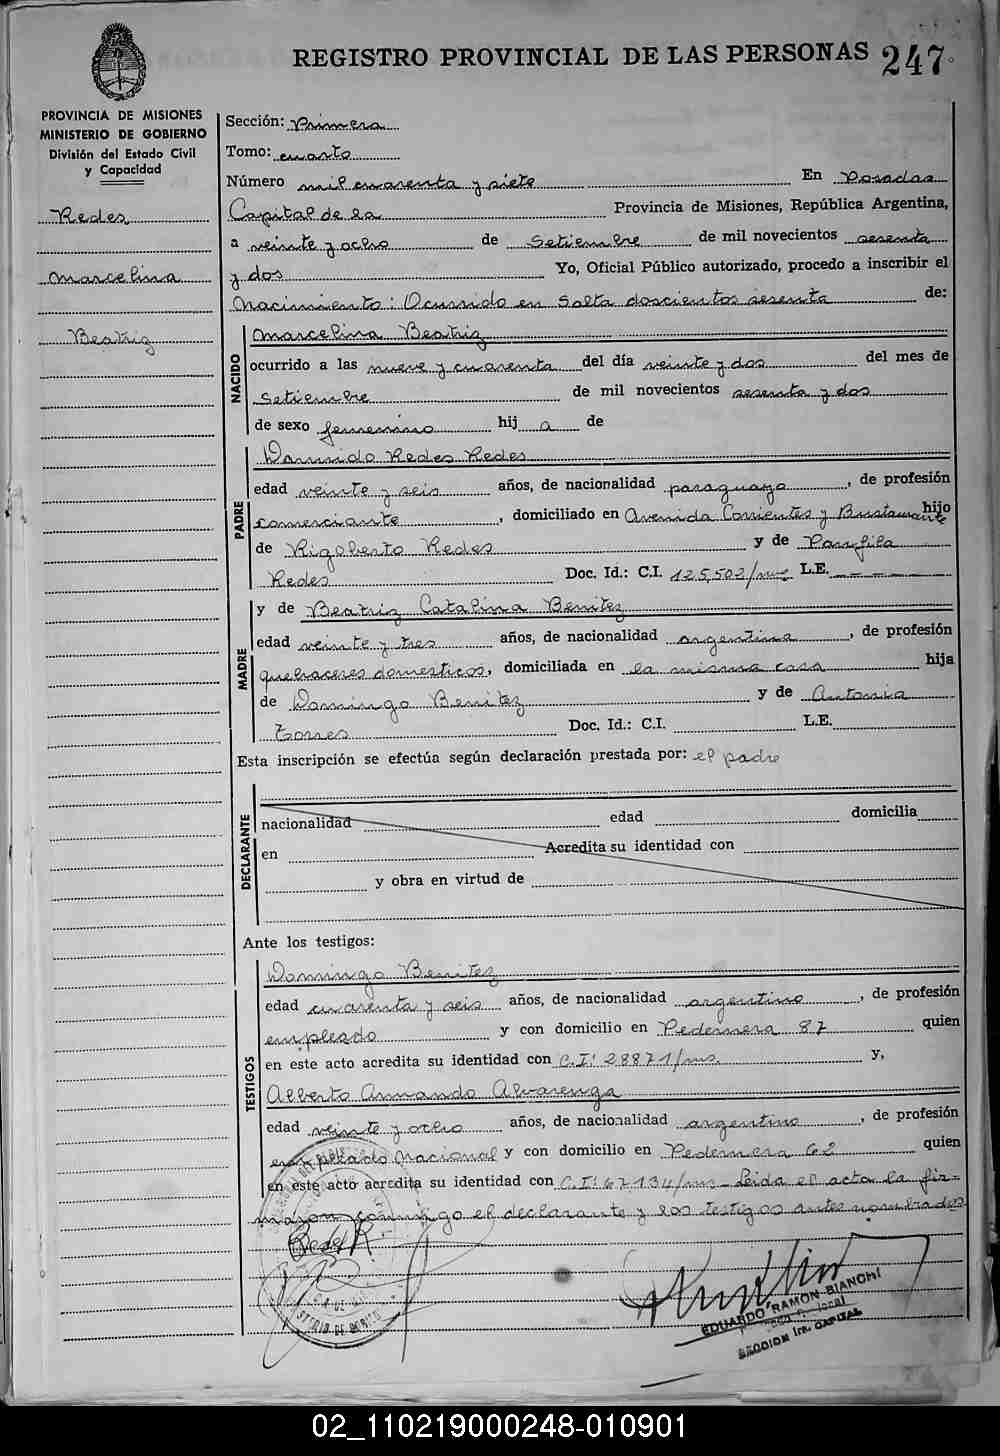 REGISTRO PROVINCIAL DE LAS PERSONAS 247
PROVINCIA DE MISIONES
MINISTERIO DE GOBIERNO
División del Estado Civil
y Capacidad
Redes
Marcelina
Beatriz
Sección: Primera
Tomo: cuarto
Número mil cuarenta y siete En Posadas
Capital de la Provincia de Misiones, República Argentina,
a veinte y ocho de Setiembre de mil novecientos sesenta
y dos Yo, Oficial Público autorizado, procedo a inscribir el
Nacimiento: Ocurrido en Salta doscientos sesenta de:
NACIDO
Marcelina Beatriz
ocurrido a las nueve y cuarenta del día veinte y dos del mes de
Setiembre de mil novecientos sesenta y dos
de sexo femenino hij a de
PADRE
Redes Redes
edad veinte y seis años, de nacionalidad paraguayo, de profesión
comerciante, domiciliado en Avenida Corrientes y Bustamante hijo
de Rigoberto Redes y de Panfila
Redes Doc. Id.: C.I. 125,502/ms L.E. - - - - -
MADRE
y de Beatriz Catalina Benitez
edad veinte y tres años, de nacionalidad argentina, de profesión
quehaceres domesticos, domiciliada en la misma casa hija
de Domingo Benitez y de Antonia
Torres Doc. Id.: C.I. L.E.
Esta inscripción se efectúa según declaración prestada por: el padre
DECLARANTE
nacionalidad edad domicilia
en Acredita su identidad con
y obra en virtud de
Ante los testigos:
TESTIGOS
Domingo Benitez
edad cuarenta y seis años, de nacionalidad argentino, de profesión
empleado y con domicilio en Pedernera 87 quien
en este acto acredita su identidad con C.I: 28871/ms. y,
Alberto Armando Alvarenga
edad veinte y ocho años, de nacionalidad argentino, de profesión
empleado nacional y con domicilio en Pedernera 62 quien
en este acto acredita su identidad con C.I: 67134/ms - Leida el acta la fir-
maron conmigo el declarante y los testigos antes nombrados
Redes R.
EDUARDO RAMON BIANCHI
SECCION 1ra. CAPITAL
02_110219000248-010901